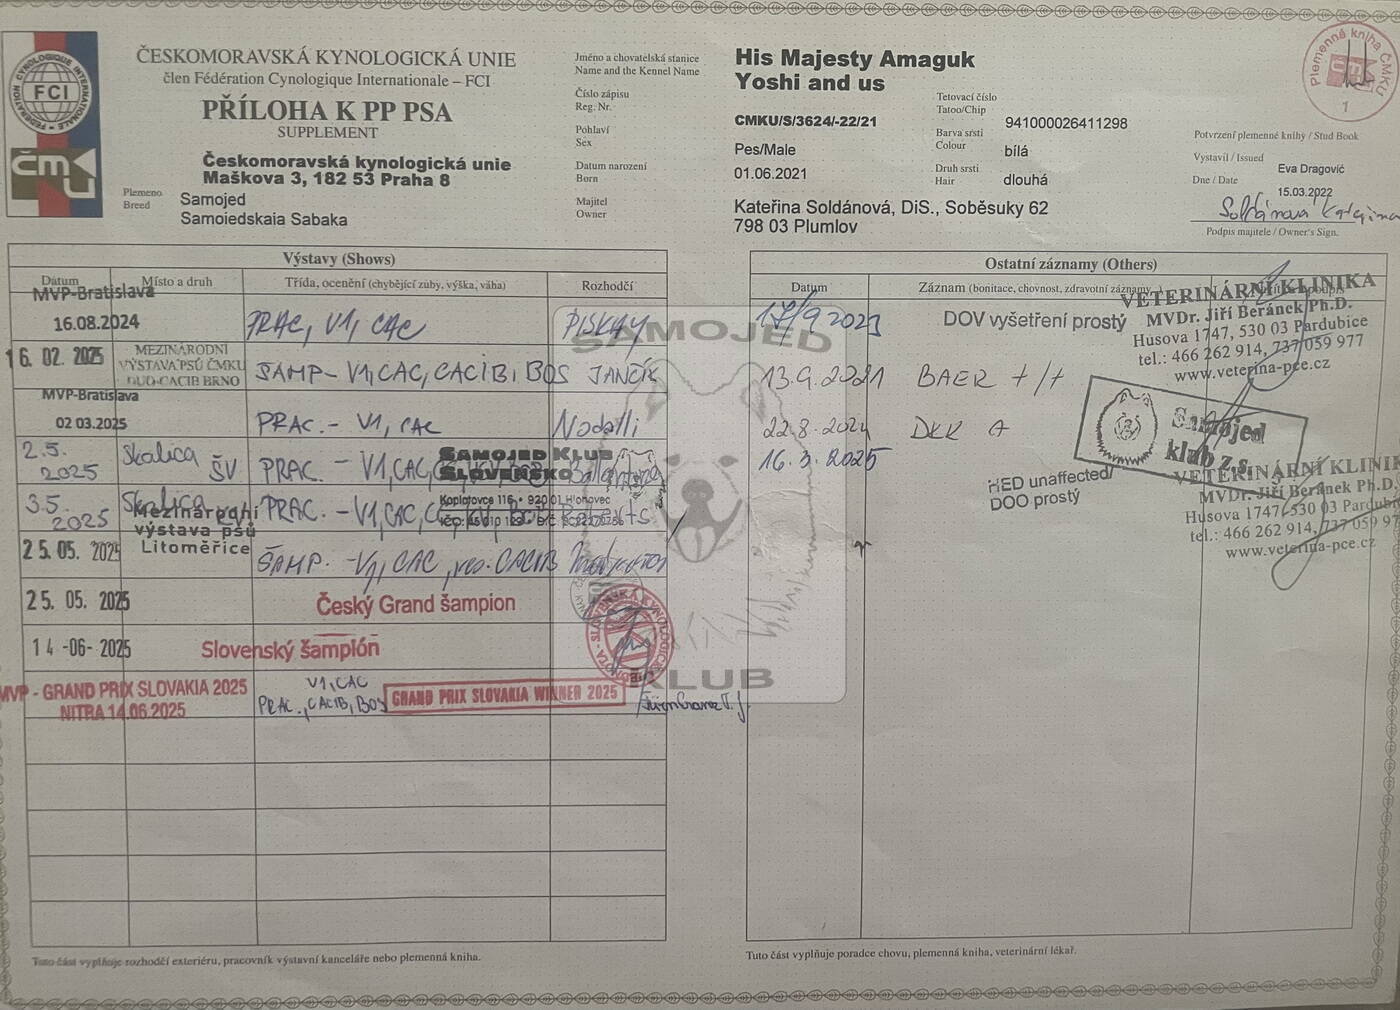 FÉDÉRATION CYNOLOGIQUE INTERNATIONALE
FCI
ČMKU
ČESKOMORAVSKÁ KYNOLOGICKÁ UNIE
člen Fédération Cynologique Internationale – FCI
PŘÍLOHA K PP PSA
SUPPLEMENT
Českomoravská kynologická unie
Maškova 3, 182 53 Praha 8
Plemeno
Breed
Samojed
Samoiedskaia Sabaka
Jméno a chovatelská stanice
Name and the Kennel Name
His Majesty Amaguk
Yoshi and us
Číslo zápisu
Reg. Nr.
CMKU/S/3624/-22/21
Pohlaví
Sex
Pes/Male
Datum narození
Born
01.06.2021
Majitel
Owner
Kateřina Soldánová, DiS., Soběsuky 62
798 03 Plumlov
Tetovací číslo
Tatoo/Chip
941000026411298
Barva srsti
Colour
bílá
Druh srsti
Hair
dlouhá
Plemenná kniha ČMKU
1
Potvrzení plemenné knihy / Stud Book
Vystavil / Issued
Eva Dragović
Dne / Date
15.03.2022
Soldánová Kateřina
Podpis majitele / Owner's Sign.
Výstavy (Shows)
Datum Místo a druh Třída, ocenění (chybějící zuby, výška, váha) Rozhodčí
MVP-Bratislava
16.08.2024 PRAC, V1, CAC PISKAY
16. 02. 2025 MEZINÁRODNÍ
VÝSTAVA PSŮ ČMKU
DUO-CACIB BRNO
ŠAMP - V1, CAC, CACIB, BOS JANČÍK
MVP-Bratislava
02 03.2025 PRAC. - V1, CAC
2.5. 2025 Skalica ŠV PRAC. - V1, CAC,
SAMOJED KLUB
SLOVENSKO
Koplotovce 116 • 920 01 Hlohovec
3.5. 2025 Skalica PRAC. - V1, CAC,
Mezinárodní
výstava psů
Litoměřice
25. 05. 2025 ŠAMP. - V1, CAC, res. CACIB
25. 05. 2025 Český Grand šampion
14 -06- 2025 Slovenský šampión
MVP - GRAND PRIX SLOVAKIA 2025
NITRA 14.06.2025
V1, CAC
PRAC., CACIB, BOS
GRAND PRIX SLOVAKIA WINNER 2025
Tuto část vyplňuje rozhodčí exteriéru, pracovník výstavní kanceláře nebo plemenná kniha.
SAMOJED
KLUB
Ostatní záznamy (Others)
Datum Záznam (bonitace, chovnost, zdravotní záznamy...)
17/9 2023 DOV vyšetření prostý
VETERINÁRNÍ KLINIKA
MVDr. Jiří Beránek Ph.D.
Husova 1747, 530 03 Pardubice
tel.: 466 262 914, 737 059 977
www.veterina-pce.cz
13.9.2021 BAER +/+
22.8.2024 DKK A
Samojed
klub z.s.
16.3.2025 HED unaffected/
DOO prostý
VETERINÁRNÍ KLINIK
MVDr. Jiří Beránek Ph.D.
Husova 1747, 530 03 Pardub
tel.: 466 262 914, 737 059 97
www.veterina-pce.cz
Tuto část vyplňuje poradce chovu, plemenná kniha, veterinární lékař.